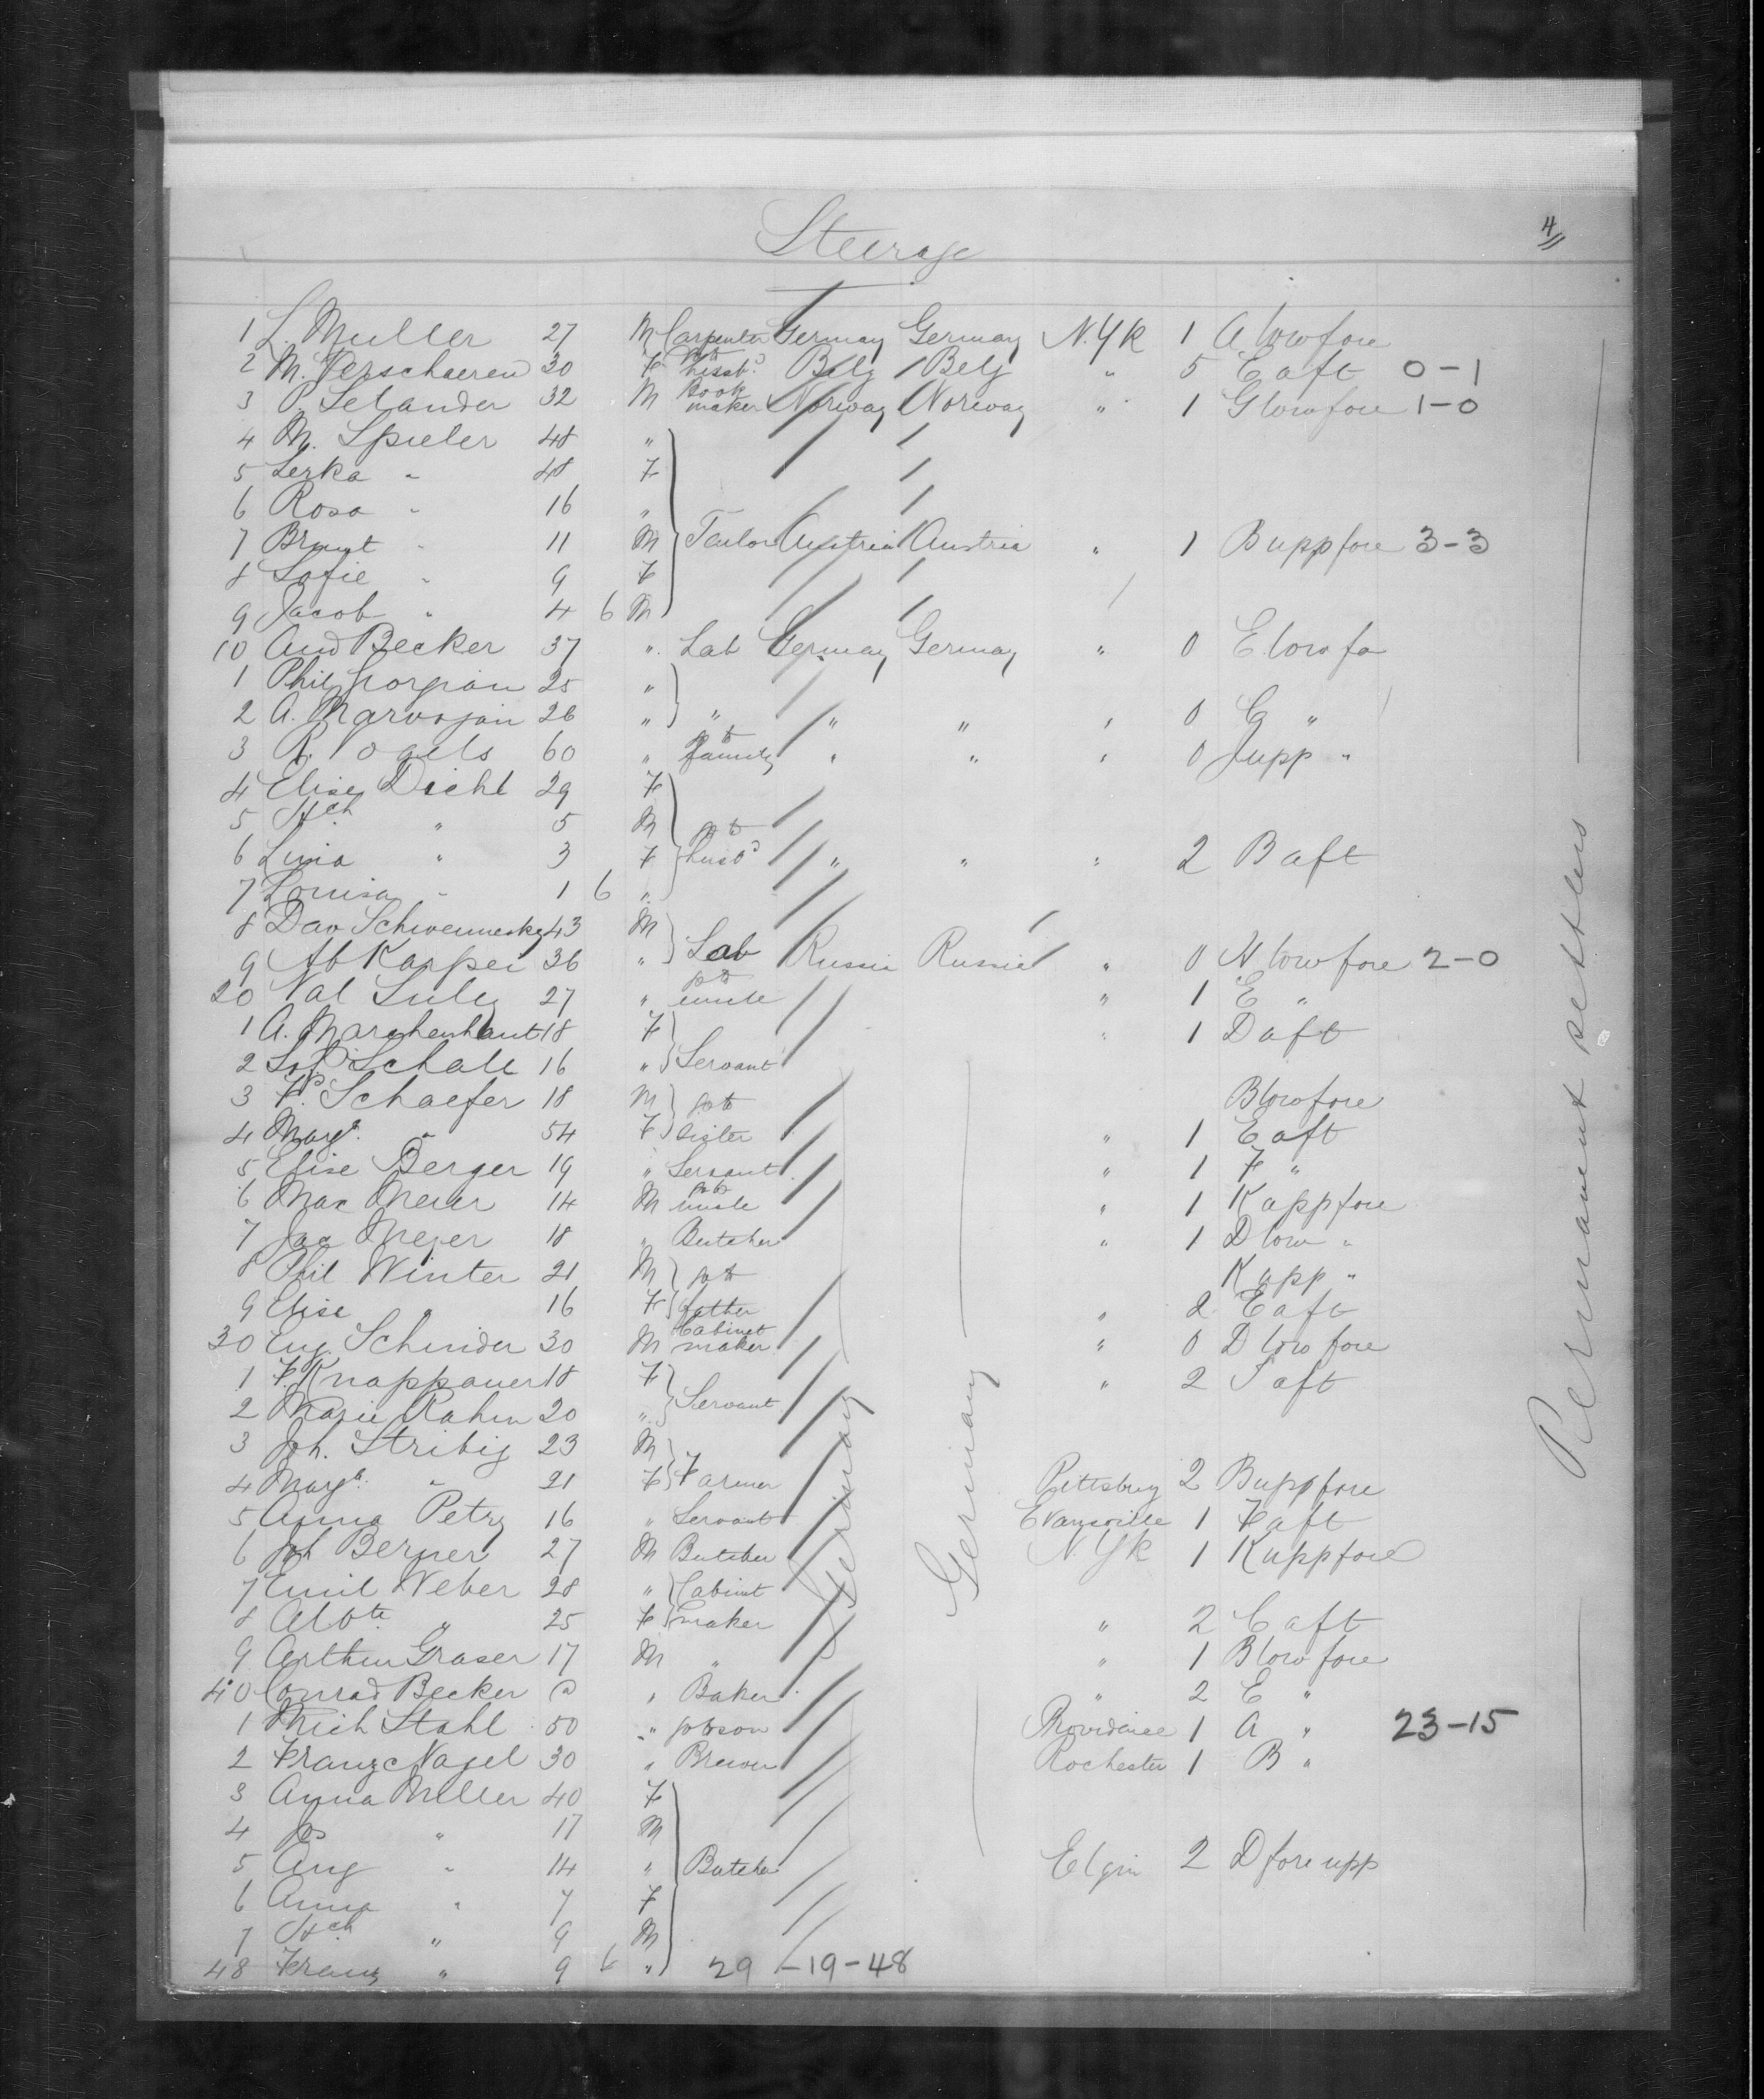 4
Steerage
1 L. Muller 27 M Carpenter Germay Germay N.Yk 1 A lowfore
2 M. Verschaeren 30 F to husbd. Belg Belg " 5 E aft 0-1
3 P. Selander 32 M Book maker Norway Norway " 1 G lowfore 1-0
4 M. Spieler 48 "
5 Serka " 48 F
6 Rosa " 16 "
7 " 11 M Tailor Austria Austria " 1 B uppfore 3-3
8 Sofie " 9 F
9 Jacob " 4 6 M
10 And Becker 37 " Lab Germay Germay " 0 E lowfo
1 Phil 25 "
2 A. 26 " " " " " 0 G "
3 R. Vogels 60 " to family " " " 0 J upp "
4 Elise Diehl 29 F
5 Hch " 5 M
6 Lina " 3 F to husbd " " " 2 B aft
7 Louisa " 1 6 "
8 Dav 43 M
9 Ab Karpei 36 " Lab Russia Russia " 0 H lowfore 2-0
20 Val 27 " to uncle " 1 E "
1 A. 18 F " 1 D aft
2 Sof Schall 16 " Servant
3 F. Schaefer 18 M to B lowfore
4 Margt. " 54 F sister " 1 E aft
5 Elise Berger 19 " Servant " 1 F "
6 Max Meier 14 M to uncle " 1 K uppfore
7 Jac Meyer 18 " Butcher " 1 D low "
8 Phil Winter 21 M to K upp "
9 Elise " 16 F father " 2 E aft
30 Eug. Schnider 30 M Cabinet maker " 0 D low fore
1 F. Knappauer 18 F " 2 J aft
2 Marie Rahm 20 " Servant
3 Joh. Stribig 23 M
4 Margt. " 21 F Farmer Pittsburg 2 B uppfore
5 Anna Petry 16 " Servant Evansville 1 F aft
6 Joh Berner 27 M Butcher N.Yk 1 K uppfore
7 Emil Weber 28 " Cabinet
8 Albte " 25 F maker " 2 C aft
9 Arthur Graser 17 M " " 1 B lowfore
40 Conrad Becker " Baker " 2 E "
1 Mich Stahl 50 " to son Providence 1 A " 23-15
2 Franz Nagel 30 " Brewer Rochester 1 B "
3 Anna Miller 40 F
4 Jos " 17 M
5 Aug " 14 " Butcher Elgin 2 D fore upp
6 Anna " 7 F
7 Hch " 9 M
48 Franz " 9 6 " 29-19-48
Germany
Germany
Permanent settlers